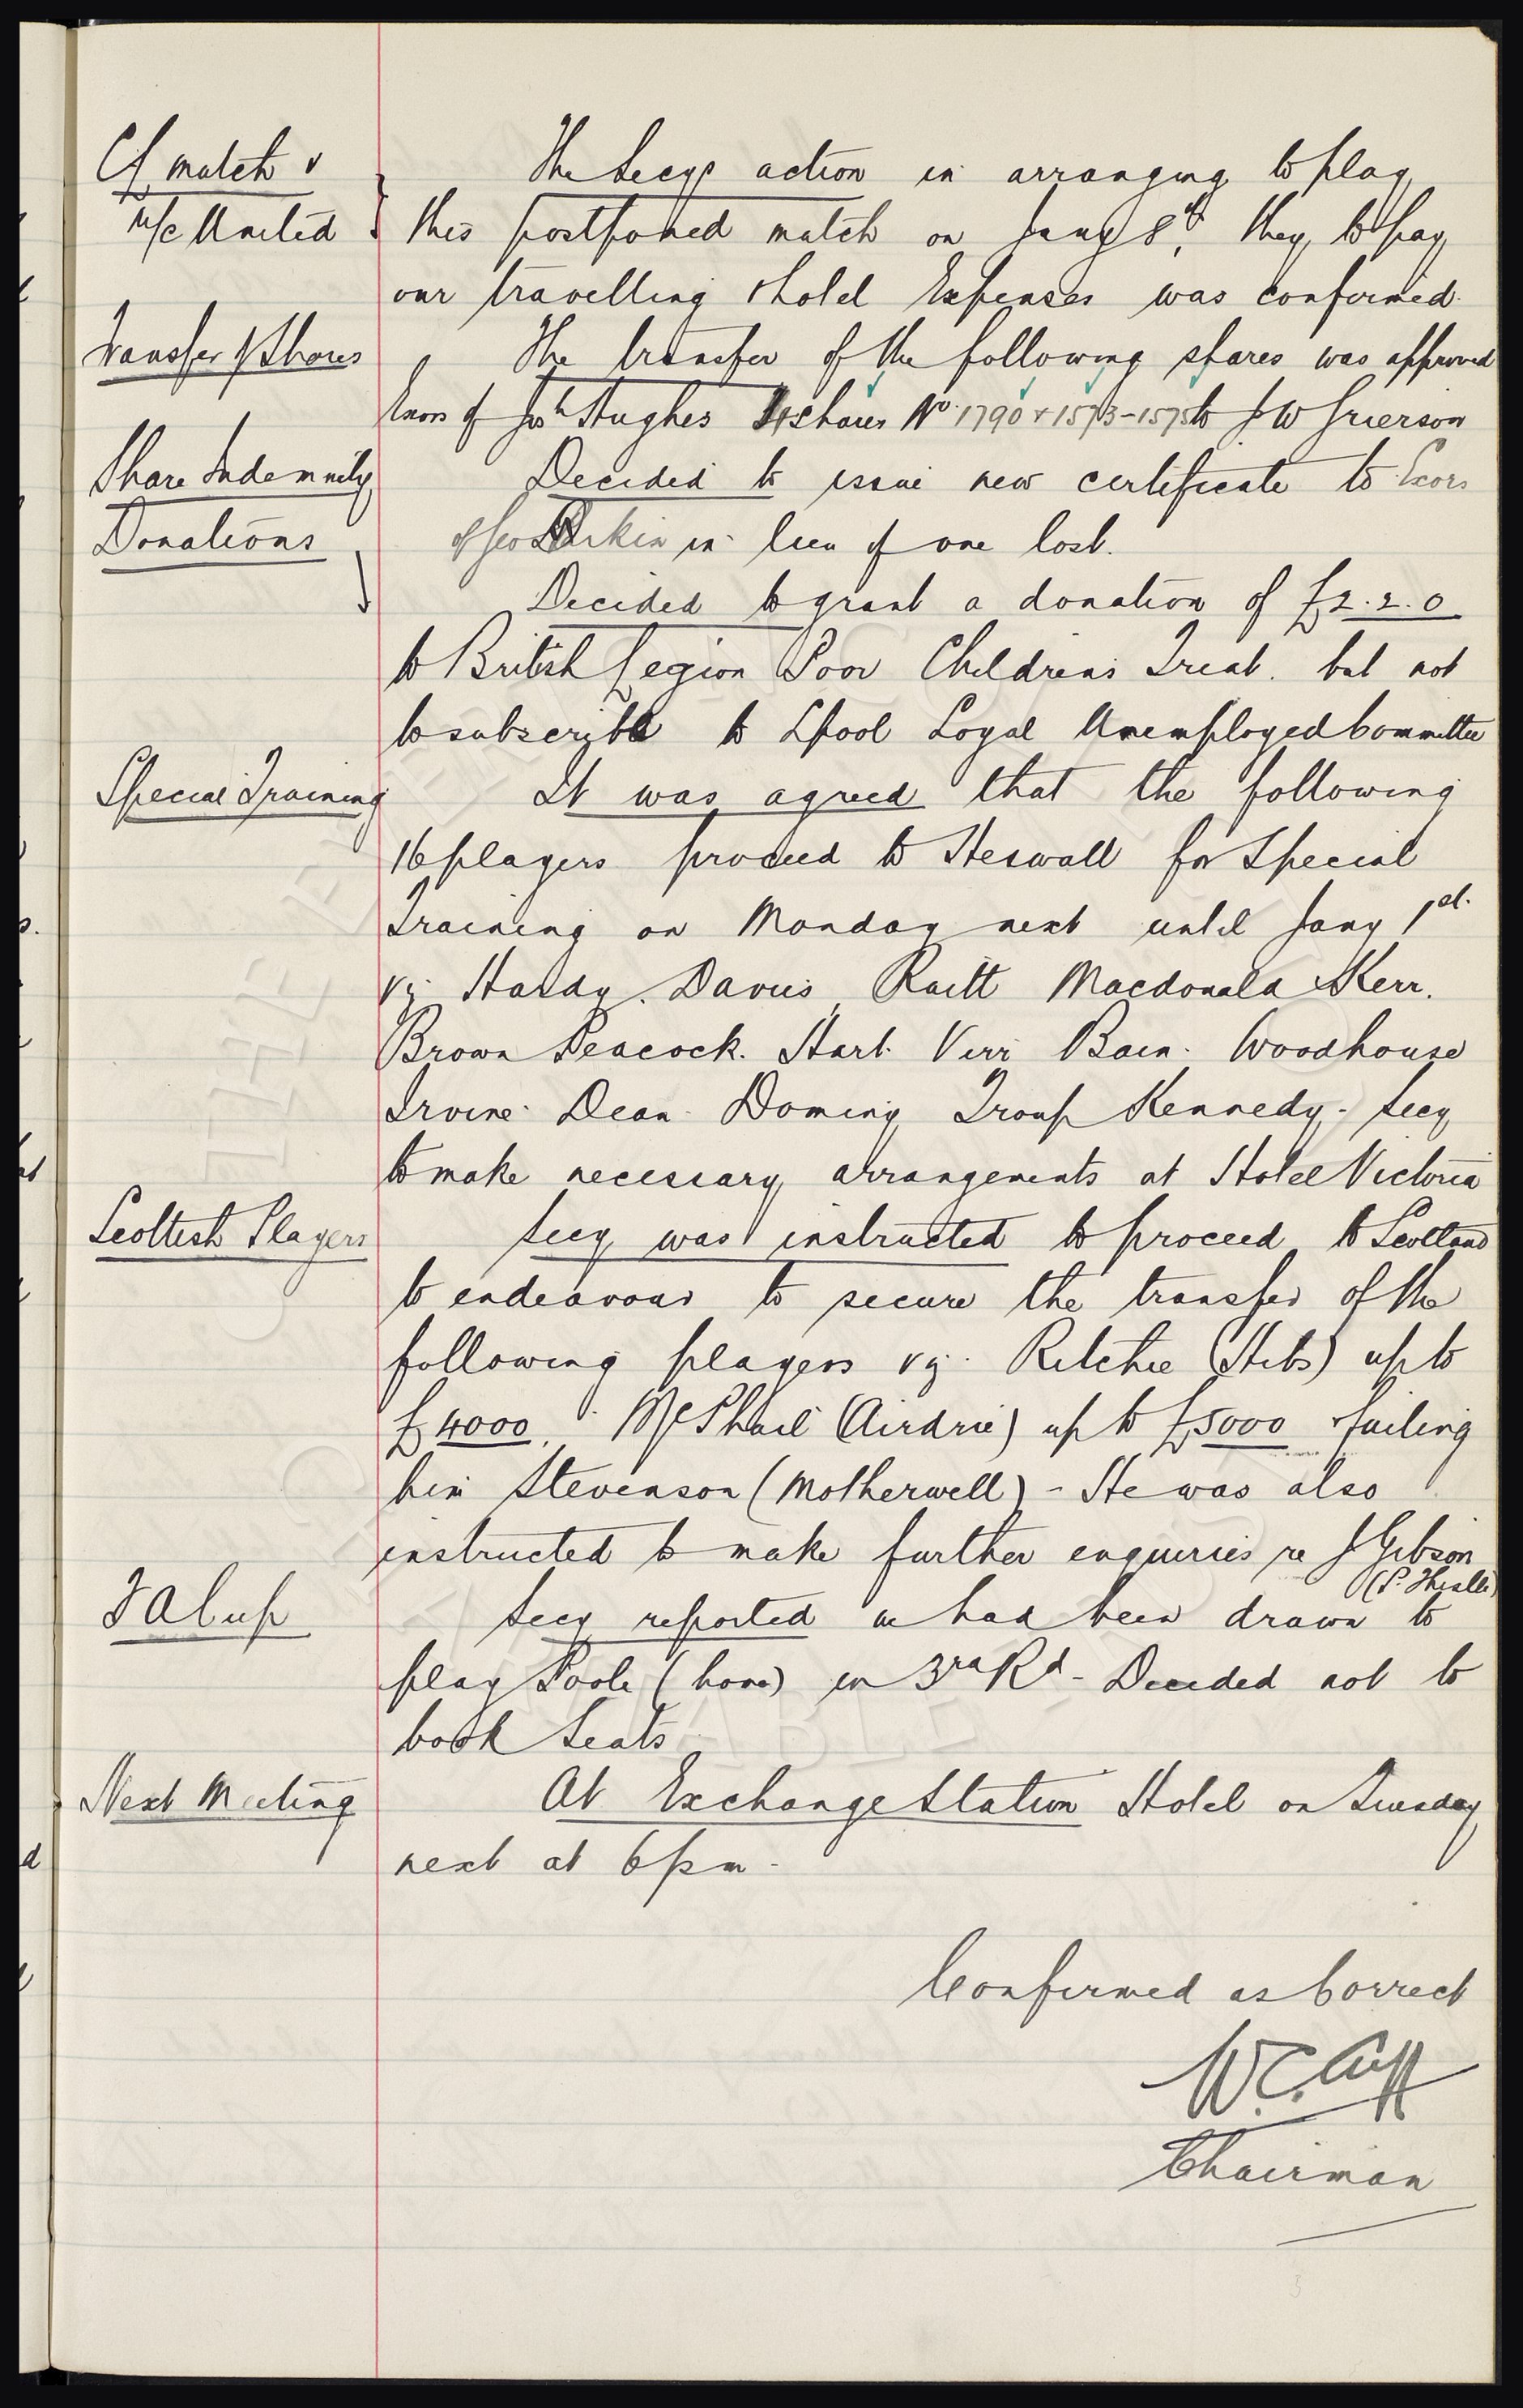 CL match v
M/c United
The Secys action in arranging to play
this postponed match on Jany 8th, they to pay
our travelling & hotel Expenses was confirmed.
Transfer of Shares
The transfer of the following shares was approved
Exors of Jos Hughes 4 shares No. 1790 & 1573-1575 to J W Grierson
Share Indemnity
Decided to issue new certificate to Exors
of Geo in lieu of one lost.
Donations
Decided to grant a donation of £2.2.0
to British Legion Poor Childrens Treat. but not
to subscribe to Lpool Loyal Unemployed Committee
Special Training
It was agreed that the following
16 players proceed to Heswall for Special
Training on Monday next until Jany 1st.
viz Hardy. Davies, Raitt Macdonald Kerr.
Brown Peacock. Hart. Virr Bain. Woodhouse
Irvine. Dean. Dominy Troup Kennedy. Secy
to make necessary arrangements at Hotel Victoria
Scottish Players
Secy was instructed to proceed to Scotland
to endeavour to secure the transfer of the
following players viz. Ritchie (Hibs) up to
£4000. McPhail (Airdrie) up to £5000 & failing
him Stevenson (Motherwell) - He was also
instructed to make further enquiries re J Gibson
(P. Thistle)
F A Cup
Secy reported we had been drawn to
play Poole (home) in 3rd Rd - Decided not to
book Seats
Next Meeting
At Exchange Station Hotel on Tuesday
next at 6 pm -
Confirmed as Correct
W.C. Cuff
Chairman